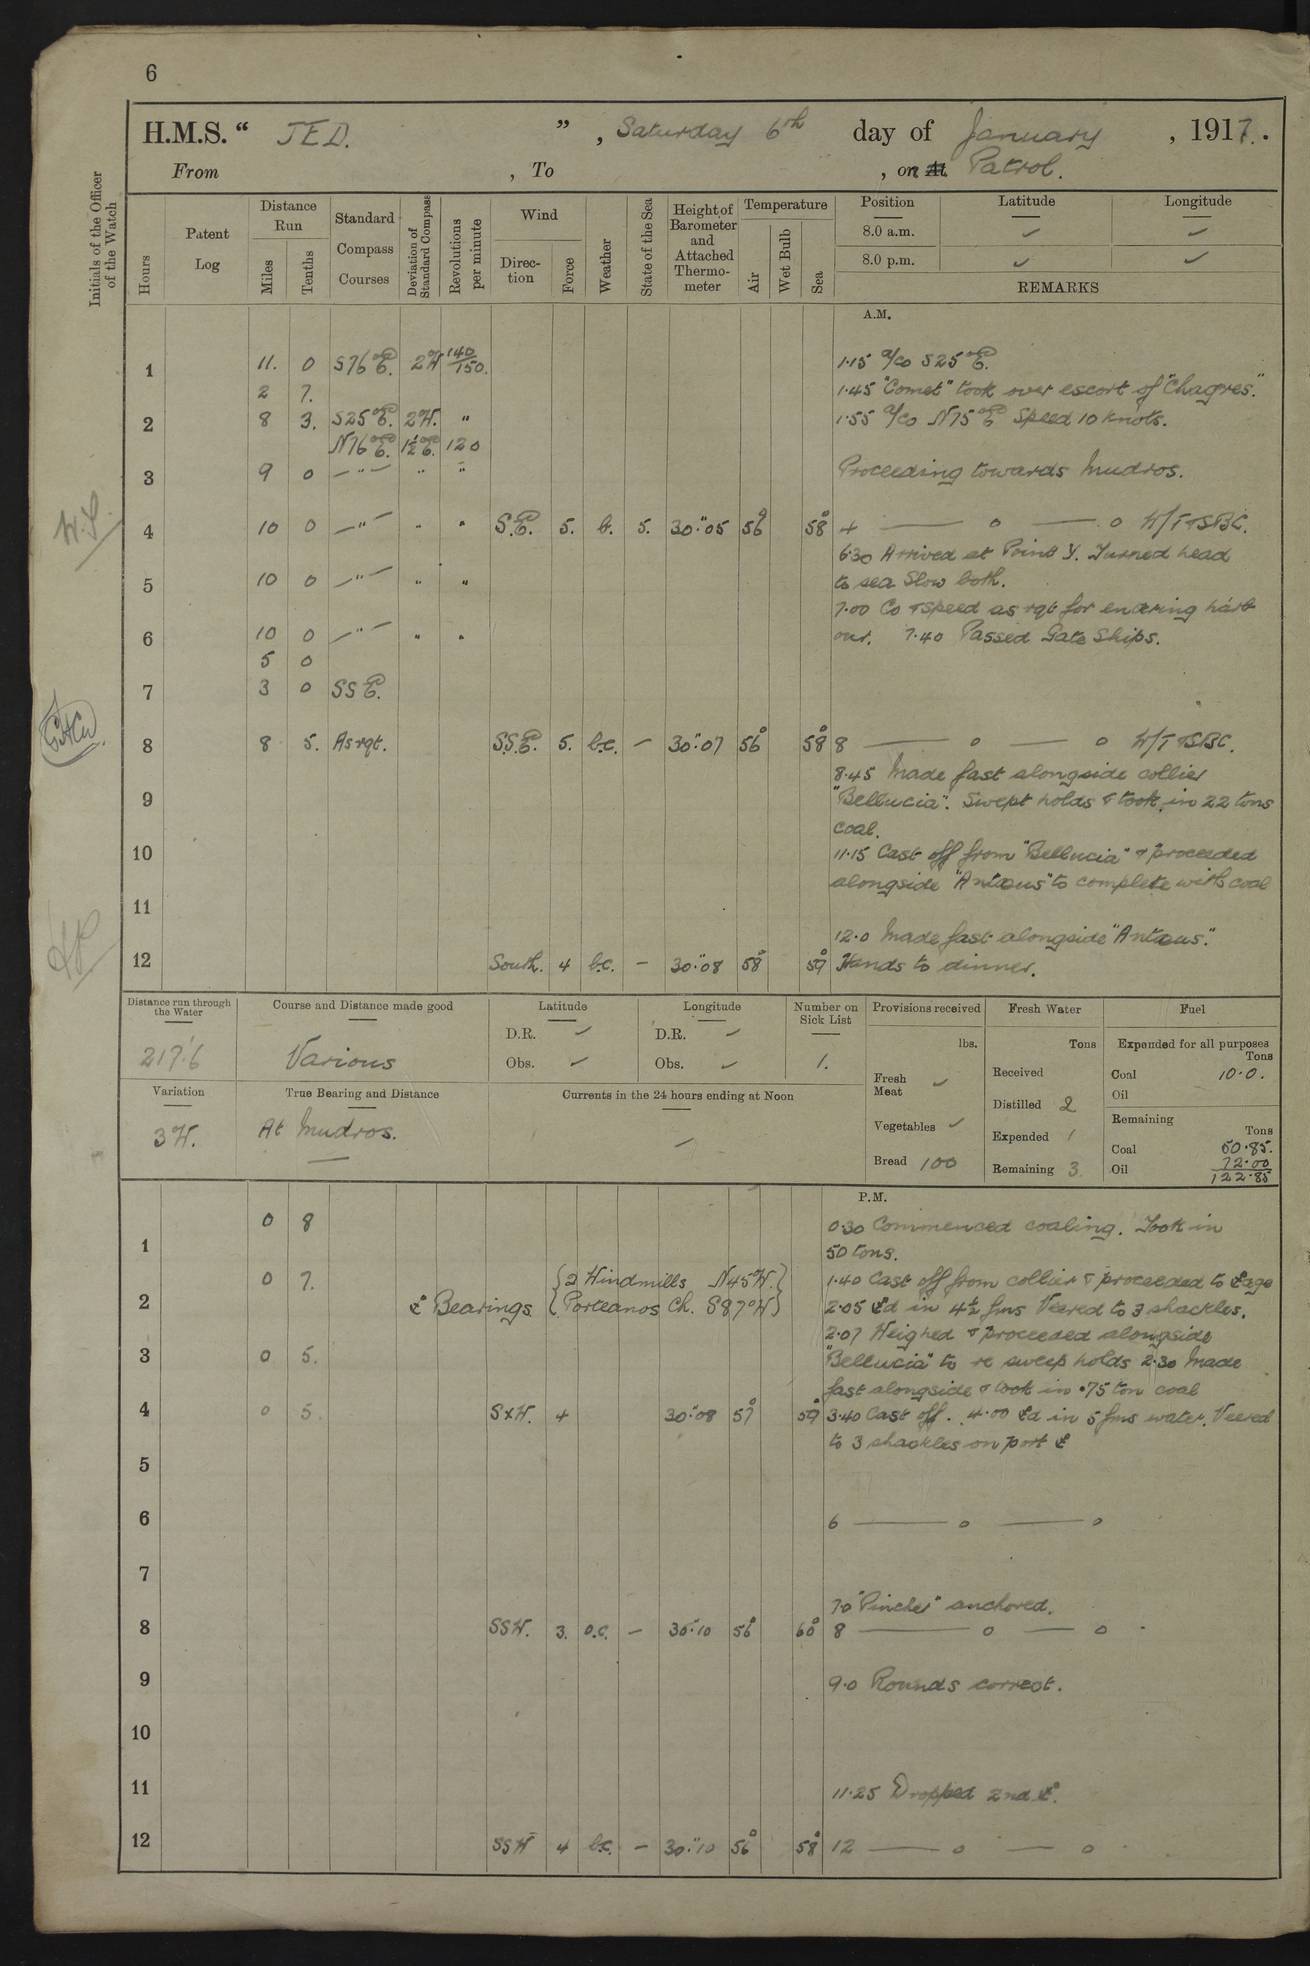 6
H.M.S. “ TED. ” , Saturday 6th day of January , 1917.
From , To , on At Patrol.
Initials of the Officer of the Watch
Hours
Patent Log
Distance Run
Miles
Tenths
Standard Compass Courses
Deviation of Standard Compass
Revolutions per minute
Wind
Direction
Force
Weather
State of the Sea
Height of Barometer and Attached Thermometer
Temperature
Air
Wet Bulb
Sea
Position Latitude Longitude
8.0 a.m. ✓ ✓
8.0 p.m. ✓ ✓
REMARKS
A.M.
1 11. 0 S76°E. 2°W 140/150. 1.15 a/co S25°E.
2 7. 1.45 "Comet" took over escort of "Chagres."
2 8 3. S25°E. 2W. " 1.55 a/co N75°E Speed 10 knots.
N76°E. 1½°E. 120
3 9 0 —"— " " Proceeding towards Mudros.
W.S.
4 10 0 —"— " " S.E. 5. b. 5. 30".05 56° 58° 4 — o — o W/T TSBC.
6.30 Arrived at Point Y. Turned head
5 10 0 —"— " " to sea Slow both.
7.00 Co & speed as rqt for entering harb
6 10 0 —"— " " our. 7.40 Passed Gate Ships.
5 0
7 3 0 SSE.
8 8 5. As rqt. S.S.E. 5. b.c. — 30".07 56° 58° 8 — o — o W/T TSBC.
8.45 Made fast alongside collier
9 "Bellucia". Swept holds & took in 22 tons
coal.
10 11.15 Cast off from "Bellucia" & proceeded
alongside "Antaeus" to complete with coal
11
12.0 Made fast alongside "Antaeus".
12 South. 4 b.c. — 30".08 58° 59° Hands to dinner.
Distance run through the Water
217.6
Course and Distance made good
Various
Latitude
D.R. ✓
Obs. ✓
Longitude
D.R. ✓
Obs. ✓
Number on Sick List
1.
Variation
3W.
True Bearing and Distance
At Mudros.
Currents in the 24 hours ending at Noon
Provisions received
lbs.
Fresh Meat ✓
Vegetables ✓
Bread 100
Fresh Water
Tons
Received
Distilled 2
Expended 1
Remaining 3
Fuel
Expended for all purposes
Tons
Coal 10.0.
Oil
Remaining
Tons
Coal 50.85.
Oil 72.00
122.85
P.M.
0 8 0.30 Commenced coaling. Took in
1 50 tons.
0 7. {2 Windmills N45°W.} 1.40 Cast off from collier & proceeded to ⚓age
2 ⚓ Bearings {Porteanos Ch. S87°W} 2.05 ⚓d in 4½ fms Veered to 3 shackles.
2.07 Weighed & proceeded alongside
3 0 5. "Bellucia" to re sweep holds 2.30 Made
fast alongside & took in .75 ton coal
4 0 5. SxW. 4 30".08 57° 59° 3.40 Cast off. 4.00 ⚓d in 5 fms water. Veered
to 3 shackles on port ⚓
5
6 6 — o — o
7
7.0 "Pincher" anchored.
8 SSW. 3. o.c. — 30".10 56° 60° 8 — o — o
9 9.0 Rounds correct.
10
11 11.25 Dropped 2nd ⚓.
12 SSW 4 b.c. — 30".10 56° 58° 12 — o — o